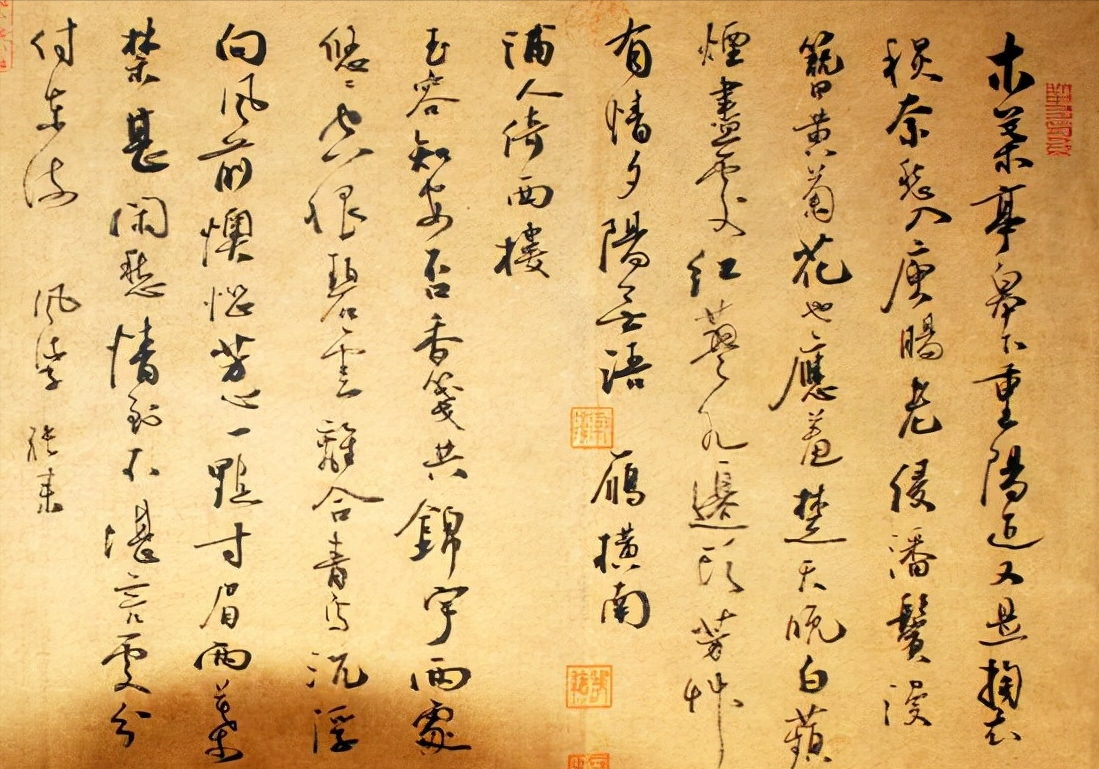 木葉亭皋下重陽近又是擣衣
秋奈愁入庾腸老侵潘鬢漫
簪黃菊花也應羞楚天晚白蘋
煙盡處紅蓼水邊頭芳艸
有情夕陽無語雁橫南
浦人倚西樓
玉容知安否香箋共錦字兩處
悠悠空恨碧雲離合青鳥沉浮
向風前懊惱芳心一點寸眉兩葉
禁甚閑愁情到不堪言處分
付東流 風流子 張耒